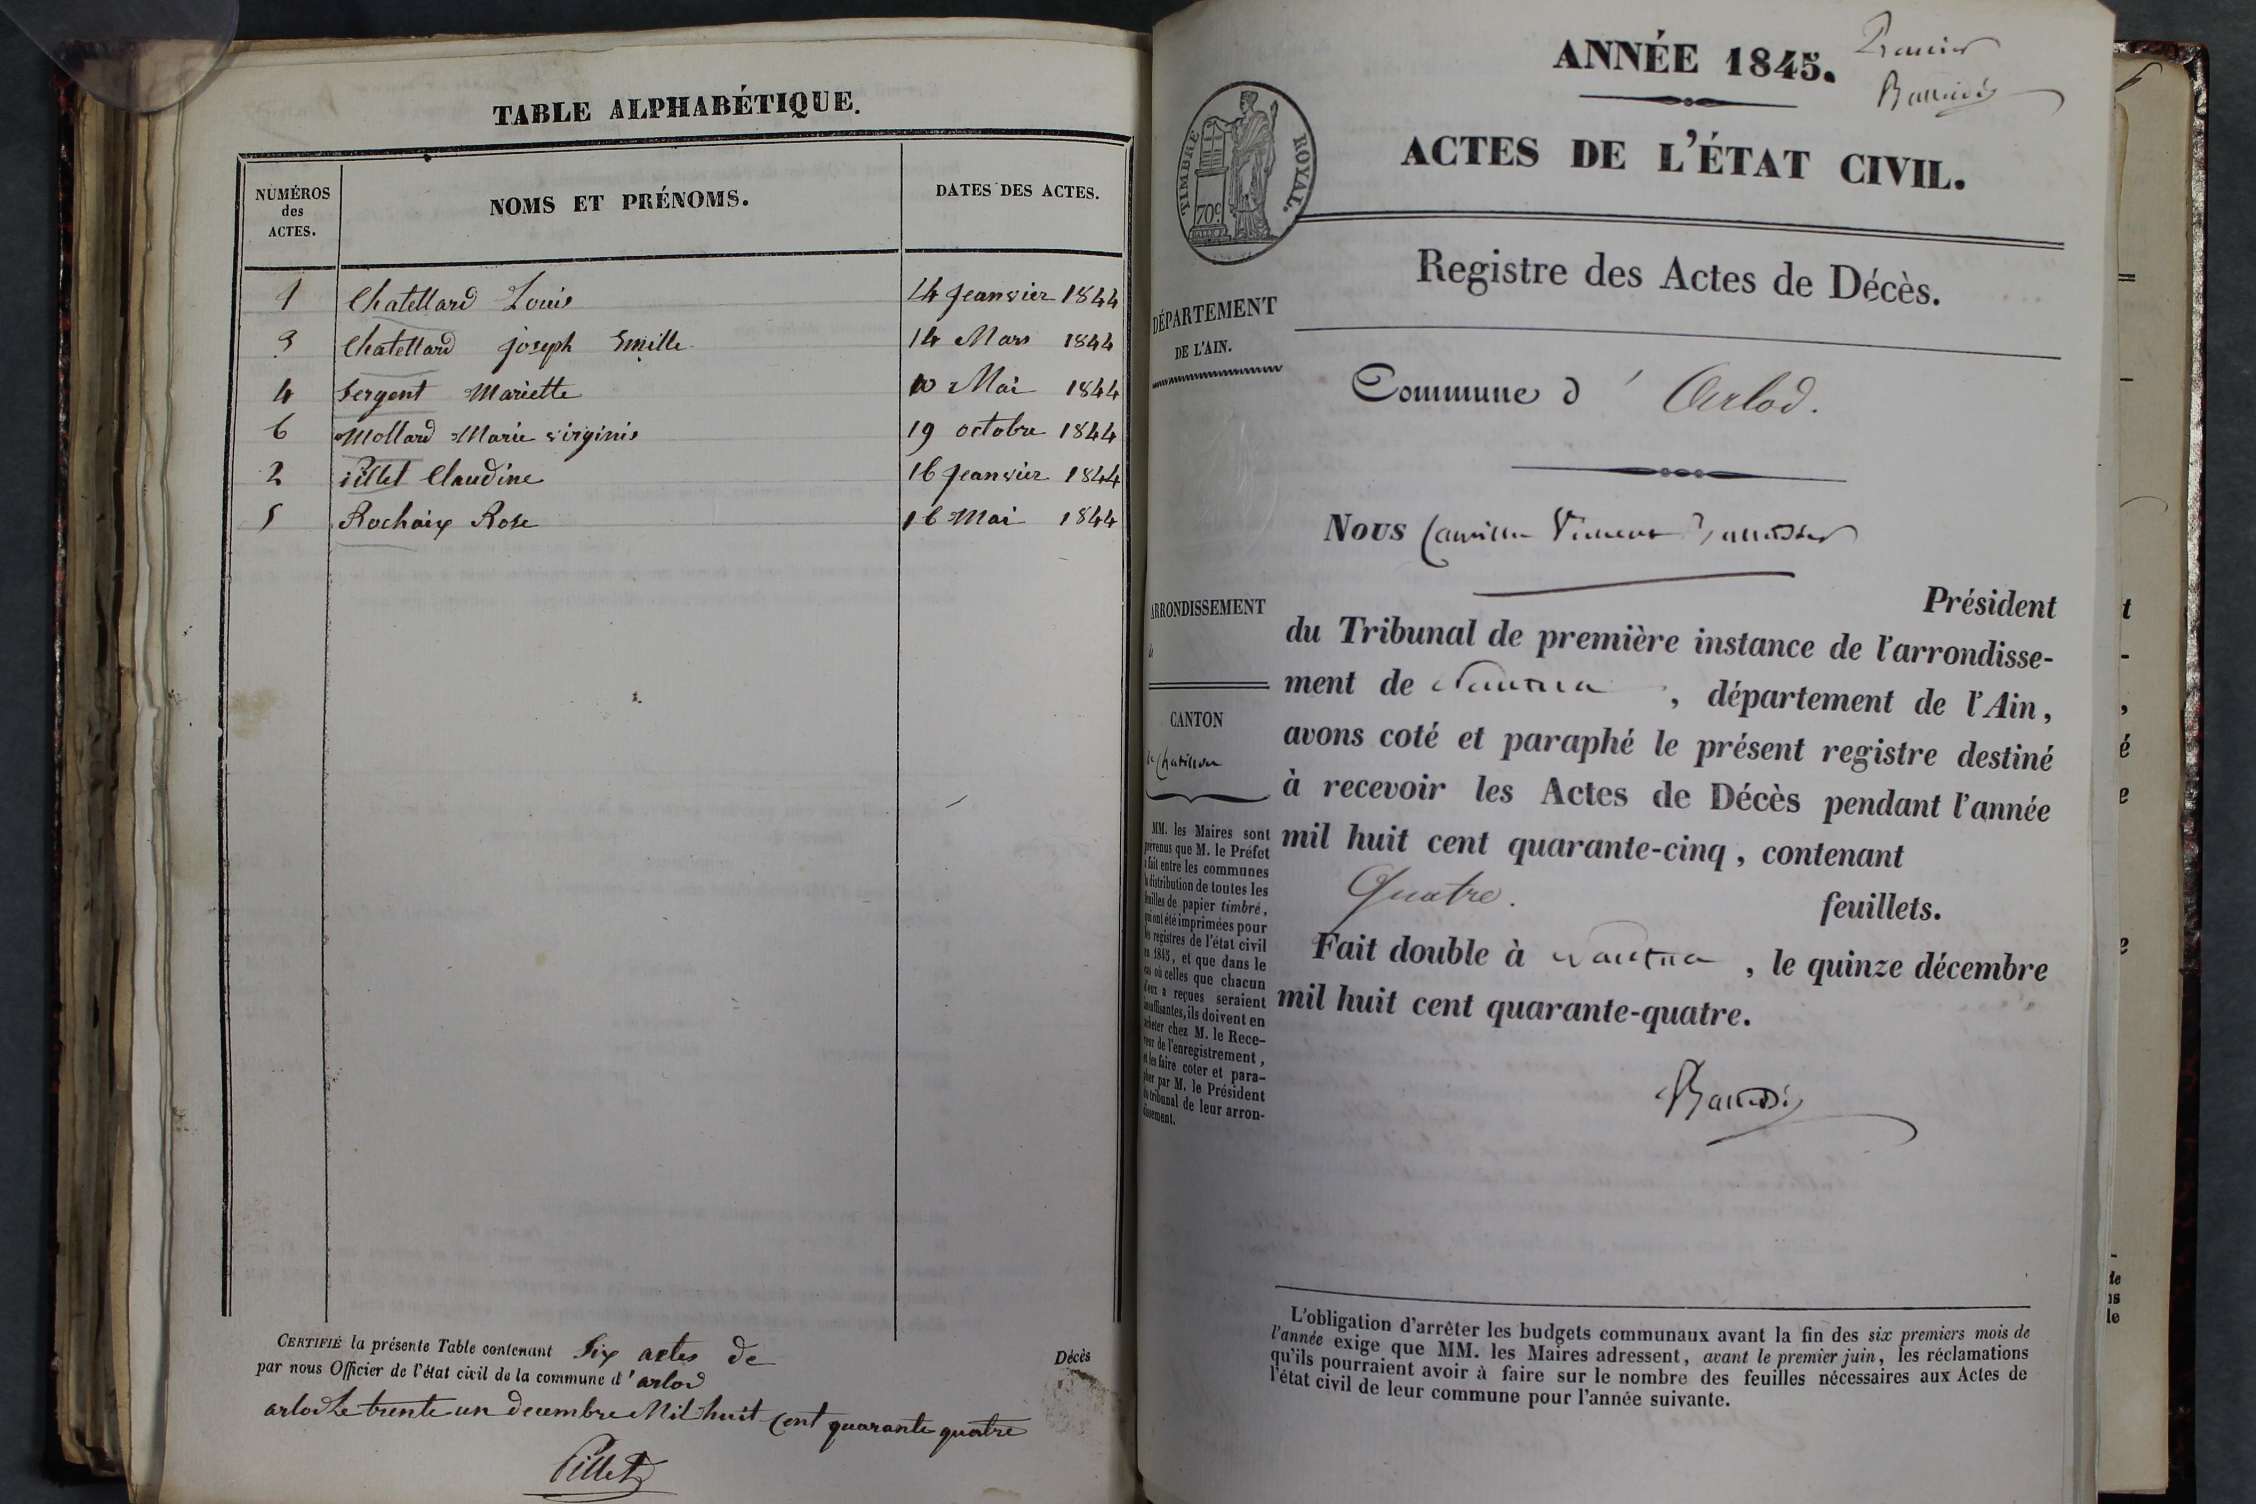 TABLE ALPHABÉTIQUE.
NUMÉROS des ACTES. NOMS ET PRÉNOMS. DATES DES ACTES.
1 Chatellard Louis 14 Jeanvier 1844
3 Chatellard joseph Emille 14 Mars 1844
4 Sergent Mariette 10 Mai 1844
6 Mollard Marie virginis 19 octobre 1844
2 Pillet Claudine 16 Jeanvier 1844
5 Rochaix Rose 16 Mai 1844
CERTIFIÉ la présente Table contenant Six actes de Décès
par nous Officier de l'état civil de la commune d'arlod
arlod Le trente un decembre Mil huit Cent quarante quatre
Pillet
ANNÉE 1845.
ACTES DE L'ÉTAT CIVIL.
TIMBRE ROYAL.
70c
Registre des Actes de Décès.
DÉPARTEMENT
DE L'AIN.
Commune d'Arlod.
Nous Camille Vincent
Président
du Tribunal de première instance de l'arrondisse-
ment de Nantua, département de l'Ain,
avons coté et paraphé le présent registre destiné
à recevoir les Actes de Décès pendant l'année
mil huit cent quarante-cinq, contenant
Quatre. feuillets.
Fait double à Nantua, le quinze décembre
mil huit cent quarante-quatre.
ARRONDISSEMENT
CANTON
de Chatillon
MM. les Maires sont
prévenus que M. le Préfet
a fait entre les communes
la distribution de toutes les
feuilles de papier timbré,
qui ont été imprimées pour
les registres de l'état civil
en 1845, et que dans le
cas où celles que chacun
d'eux a reçues seraient
insuffisantes, ils doivent en
acheter chez M. le Rece-
veur de l'enregistrement,
et les faire coter et para-
pher par M. le Président
du tribunal de leur arron-
dissement.
L'obligation d'arrêter les budgets communaux avant la fin des six premiers mois de
l'année exige que MM. les Maires adressent, avant le premier juin, les réclamations
qu'ils pourraient avoir à faire sur le nombre des feuilles nécessaires aux Actes de
l'état civil de leur commune pour l'année suivante.